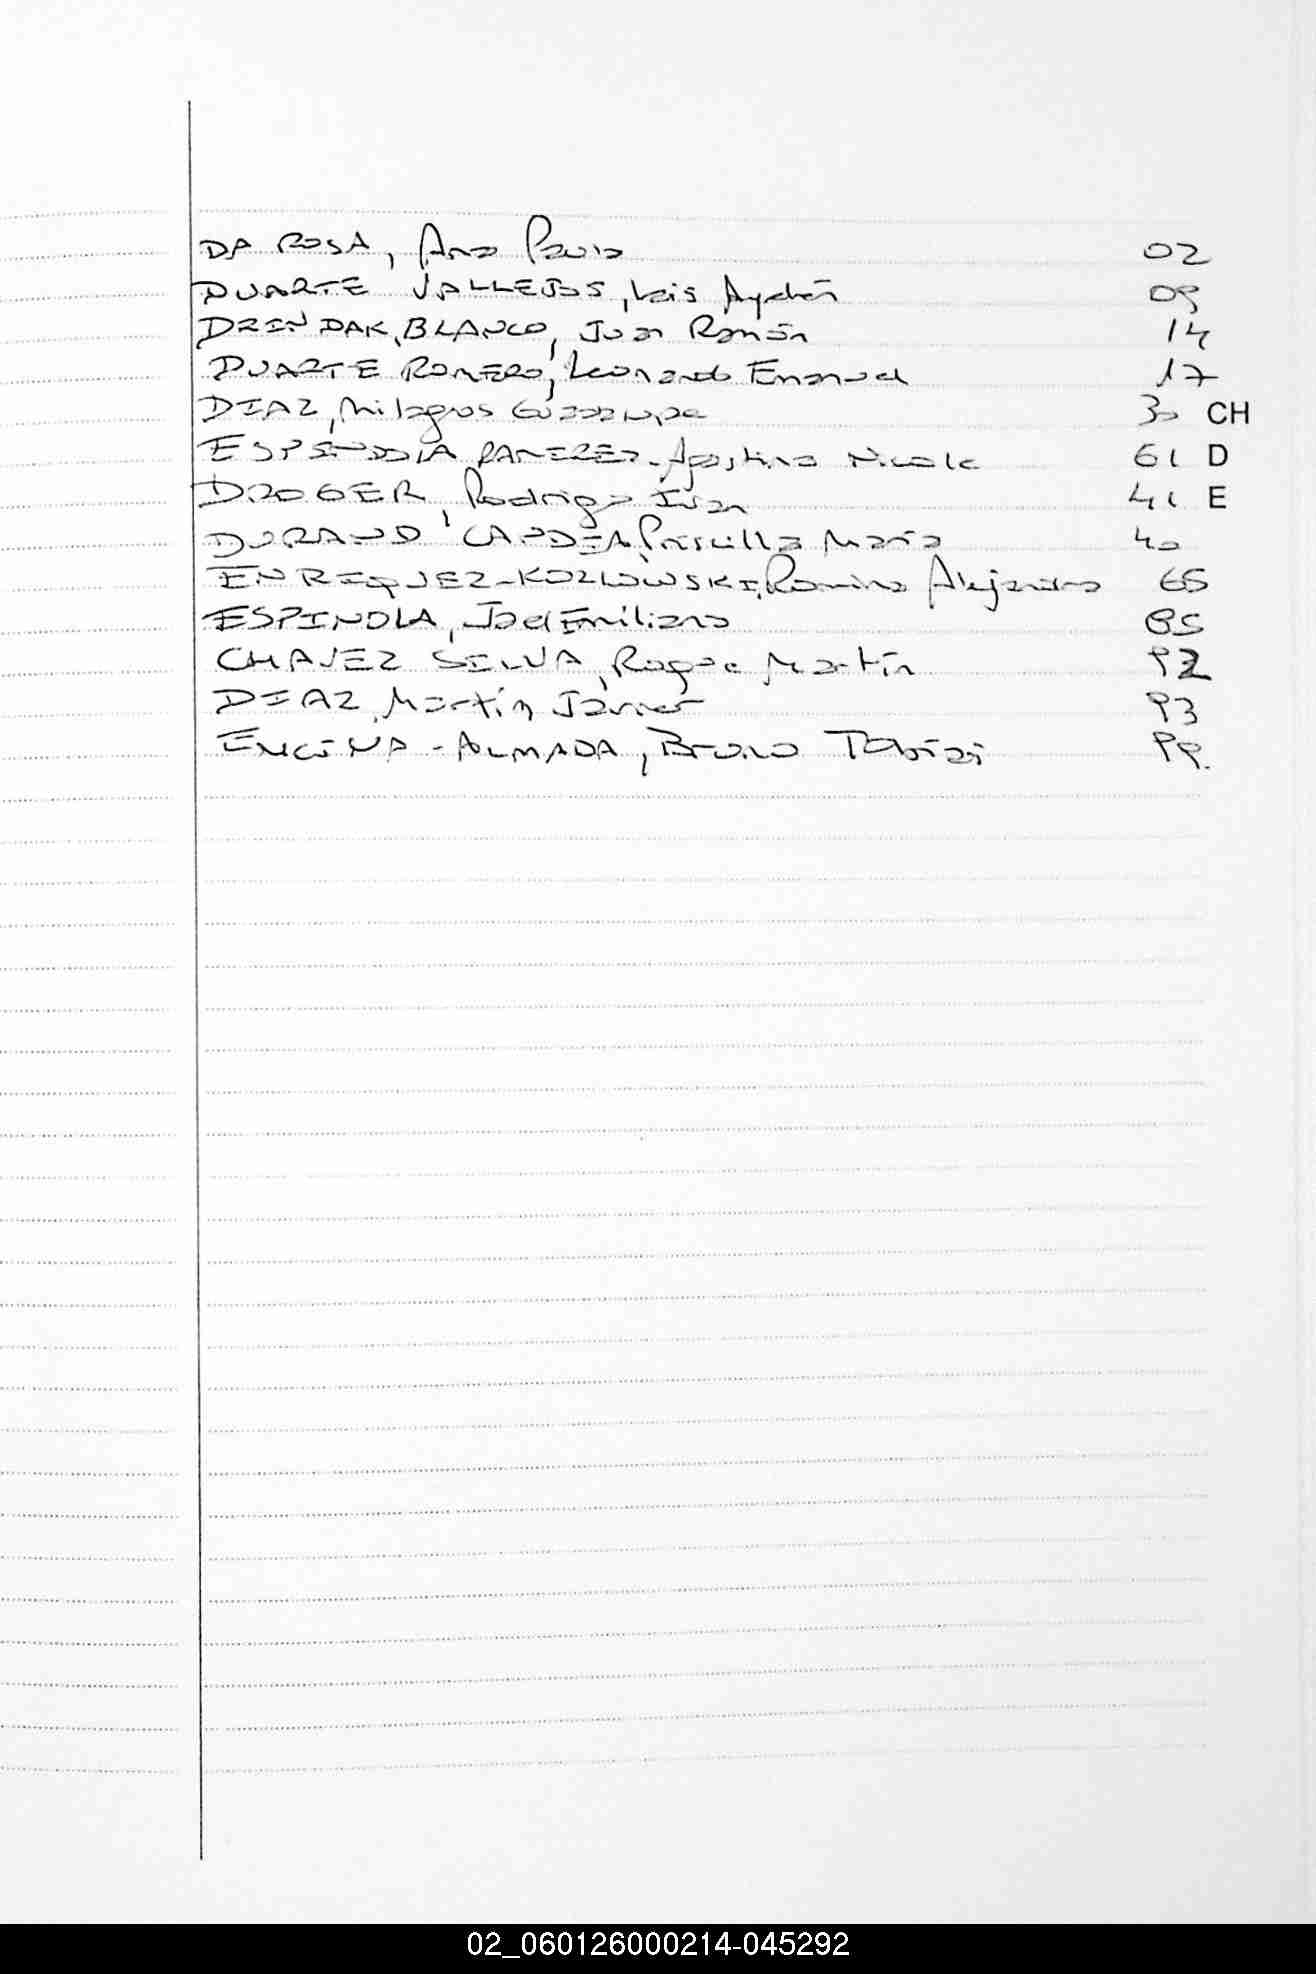 DA ROSA, Ana Paula 02
DUARTE VALLEJOS, Luis Aydán 09
DRINDAK, BLANCO, Juan Román 14
DUARTE ROMERO, Leonardo Emanuel 17
DIAZ, Milagros Guadalupe 30 CH
ESPINDOLA RAMIREZ, Agostina Nicole 61 D
DROGER, Rodrigo Iván 41 E
DURAND CANDIA, Priscilla María 40
ENRIQUEZ-KOZLOWSKI, Romina Alejandra 66
ESPINDOLA, Joel Emiliano 85
CHAVEZ SILVA, Roque Martín 92
DIAZ, Martín Javier 93
ENCINA - ALMADA, Bruno Tobías 99.
02_060126000214-045292